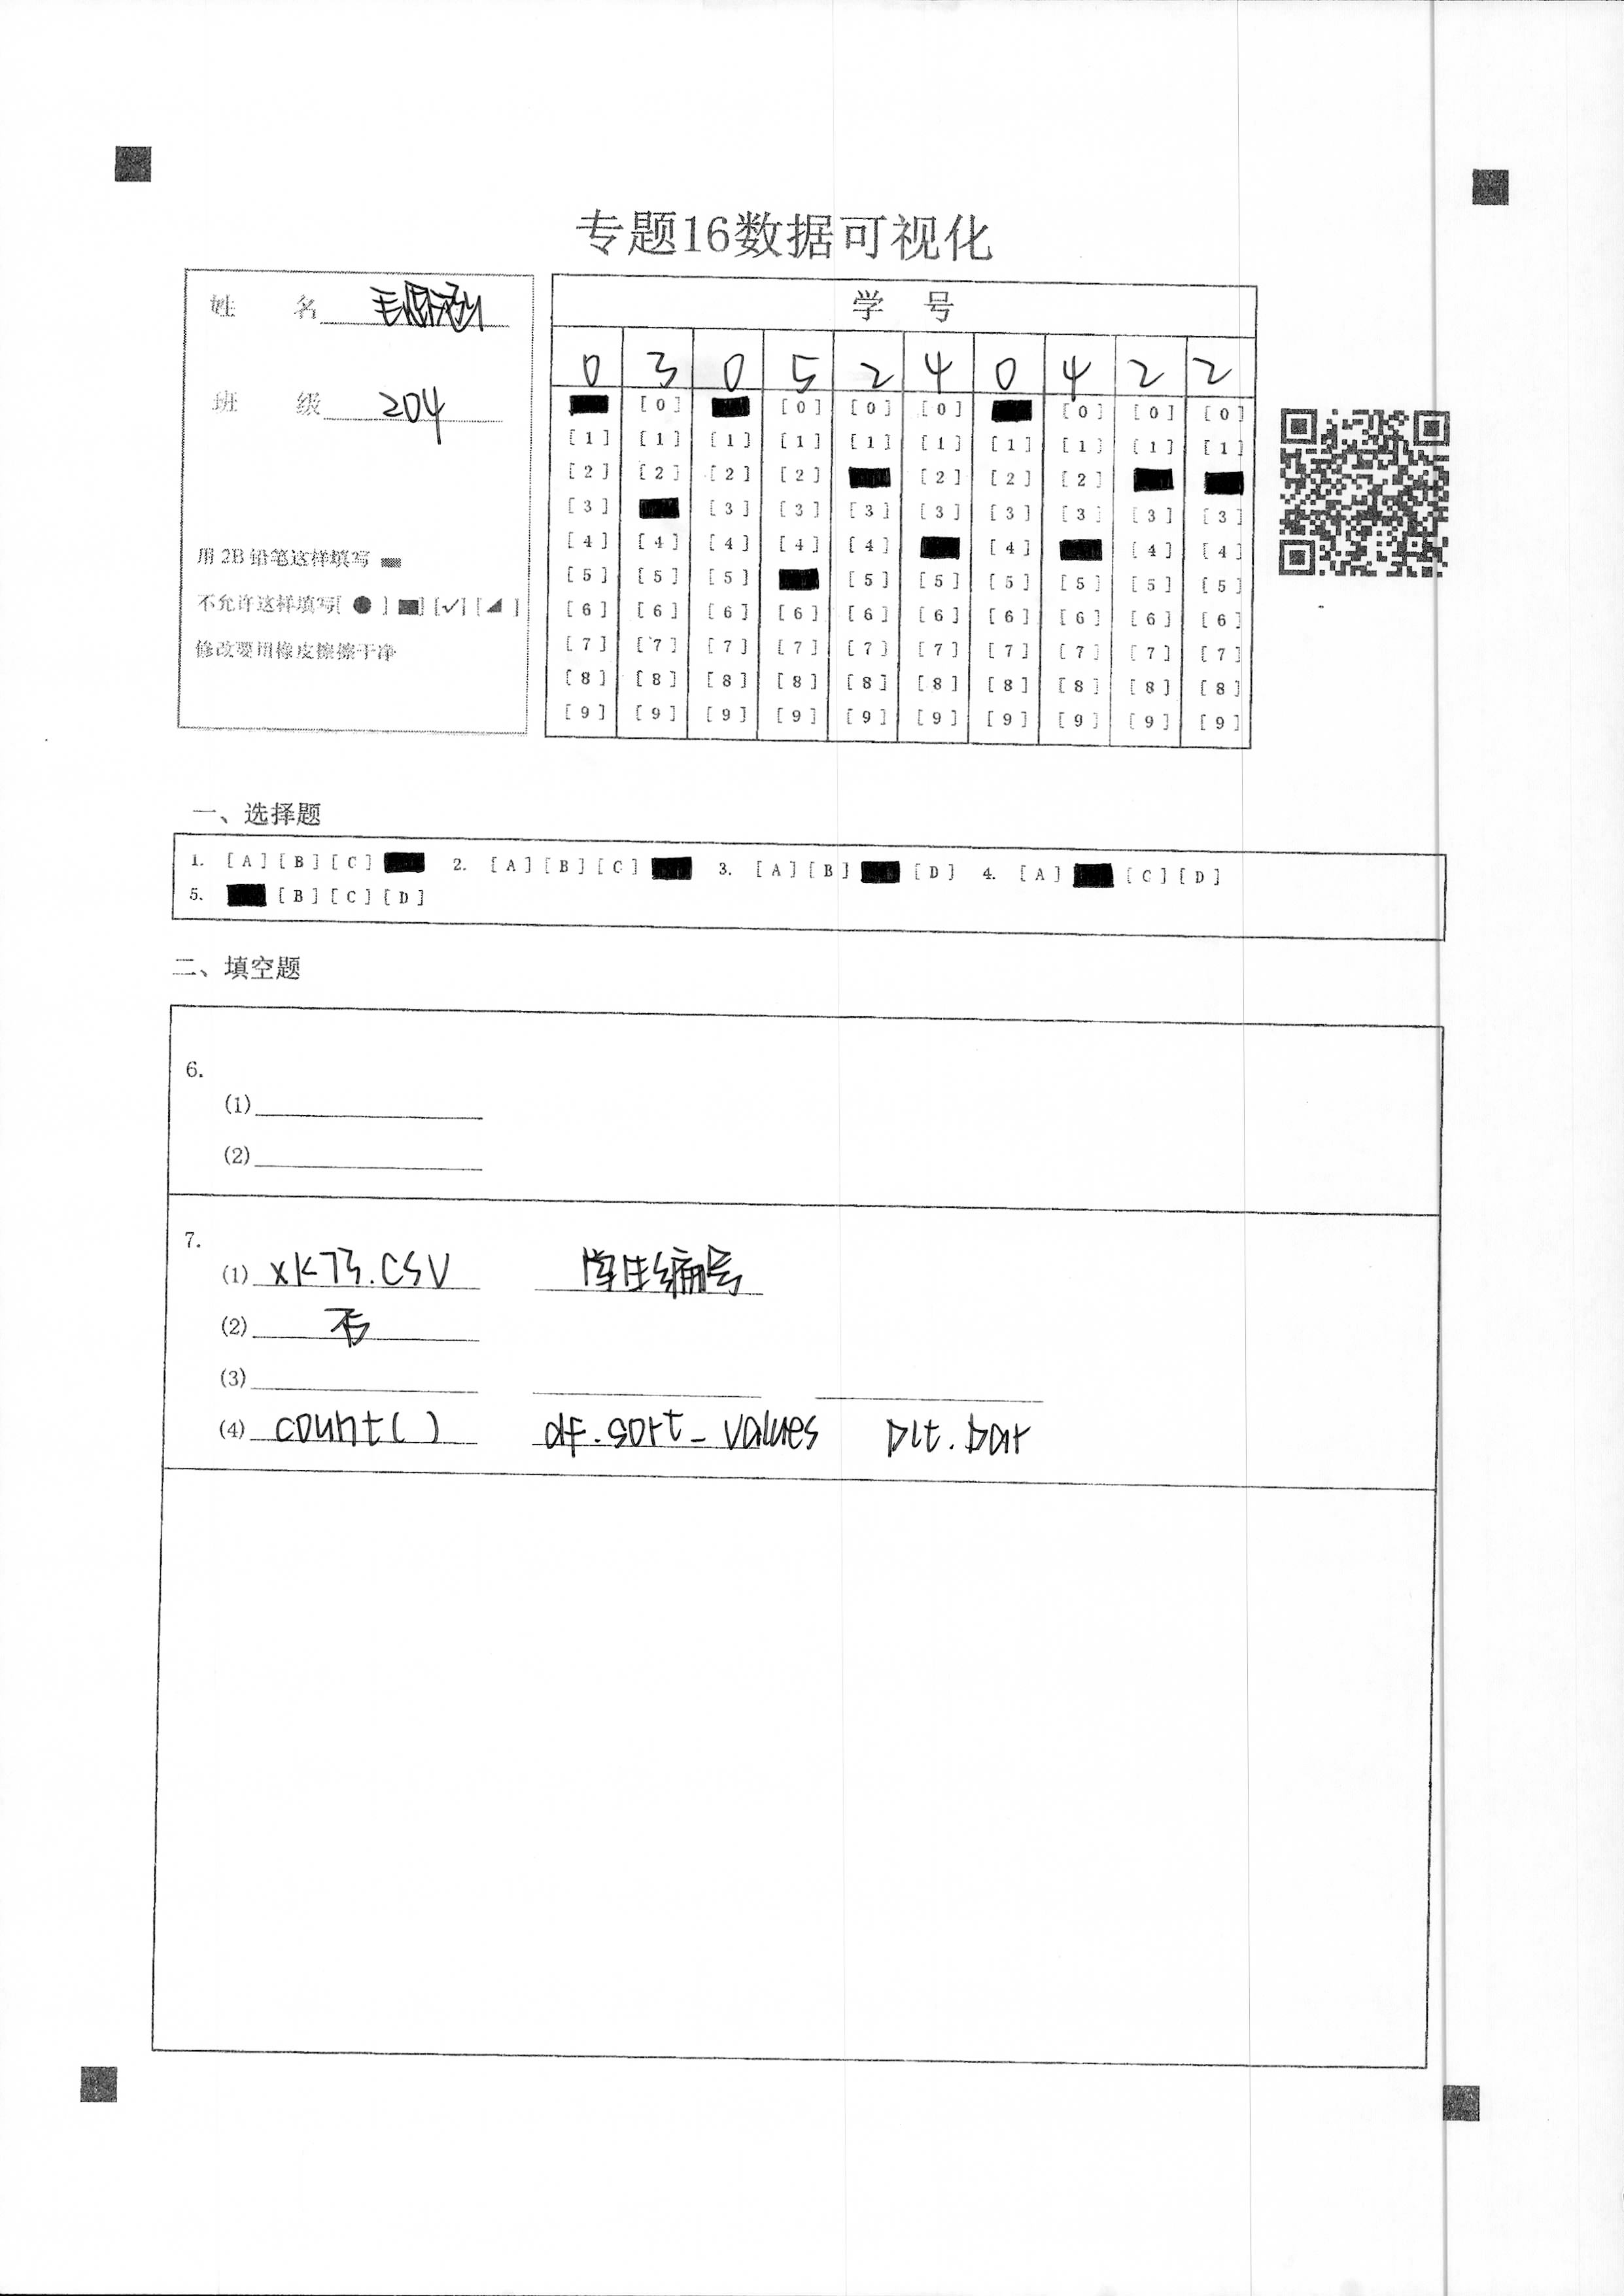 专题16数据可视化
姓 名
班 级 204
用 2B 铅笔这样填写
不允许这样填写[ ● ] [✓] [ ]
修改要用橡皮擦擦干净
学 号
0 3 0 5 2 4 0 4 2 2
[0] [0] [0] [0] [0] [0] [0]
[1] [1] [1] [1] [1] [1] [1] [1] [1] [1]
[2] [2] [2] [2] [2] [2] [2]
[3] [3] [3] [3] [3] [3] [3] [3] [3]
[4] [4] [4] [4] [4] [4] [4] [4]
[5] [5] [5] [5] [5] [5] [5] [5] [5]
[6] [6] [6] [6] [6] [6] [6] [6] [6] [6]
[7] [7] [7] [7] [7] [7] [7] [7] [7] [7]
[8] [8] [8] [8] [8] [8] [8] [8] [8] [8]
[9] [9] [9] [9] [9] [9] [9] [9] [9] [9]
一、选择题
1. [A] [B] [C] 2. [A] [B] [C] 3. [A] [B] [D] 4. [A] [C] [D]
5. [B] [C] [D]
二、填空题
6.
(1)
(2)
7.
(1) xk73.csv 学生编号
(2) 否
(3)
(4) count() df.sort_values plt.bar